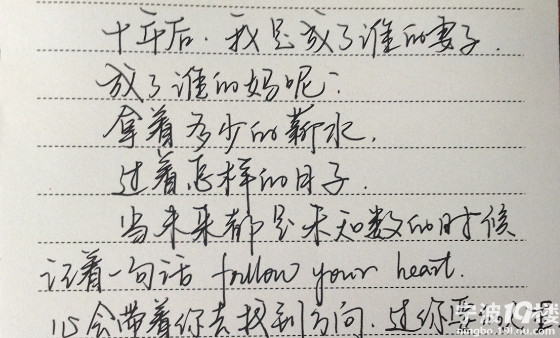 十年后.我是成了谁的妻子.
成了谁的妈呢?
拿着多少的薪水.
过着怎样的日子.
当未来都是未知数的时候
记着一句话 follow your heart.
心会带着你去找到方向.过你
宁波19楼
ningbo.19lou.com